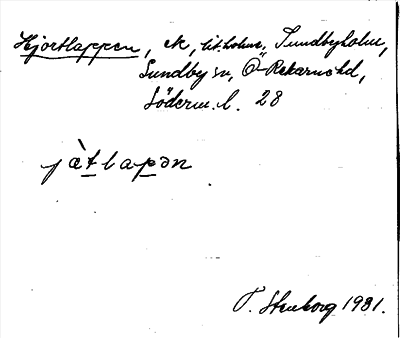 Hjortlappen, ek, lit. holme, Sundbyholm,
Sundby sn, Ö-Rekarne hd,
Söderm. l. 28
jàtlapən
T. Stenborg 1931.